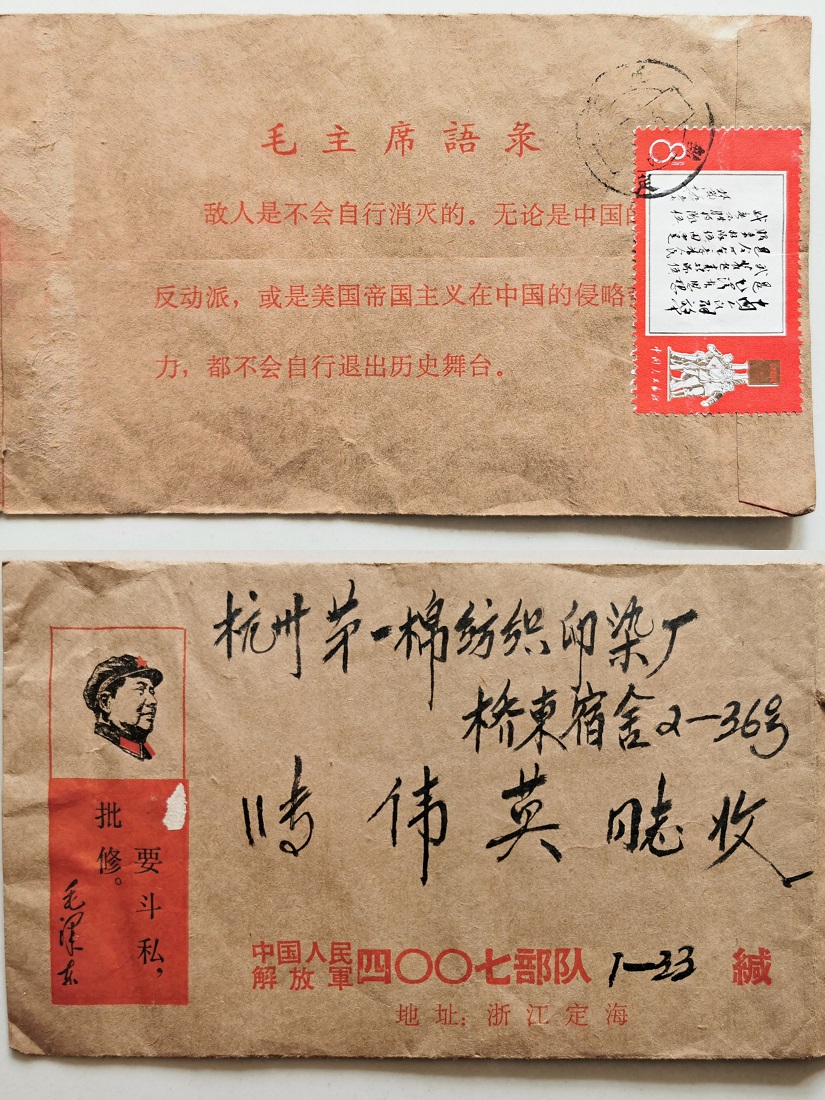 毛主席語录
敌人是不会自行消灭的。无论是中国的
反动派，或是美国帝国主义在中国的侵略
力，都不会自行退出历史舞台。
8分
中国人民邮政
杭州第一棉纺织印染厂
桥東宿舍2-36号
傅伟英同志收
要斗私，
批修。
毛泽东
中国人民
解放軍
四〇〇七部队 1-33 缄
地址：浙江定海